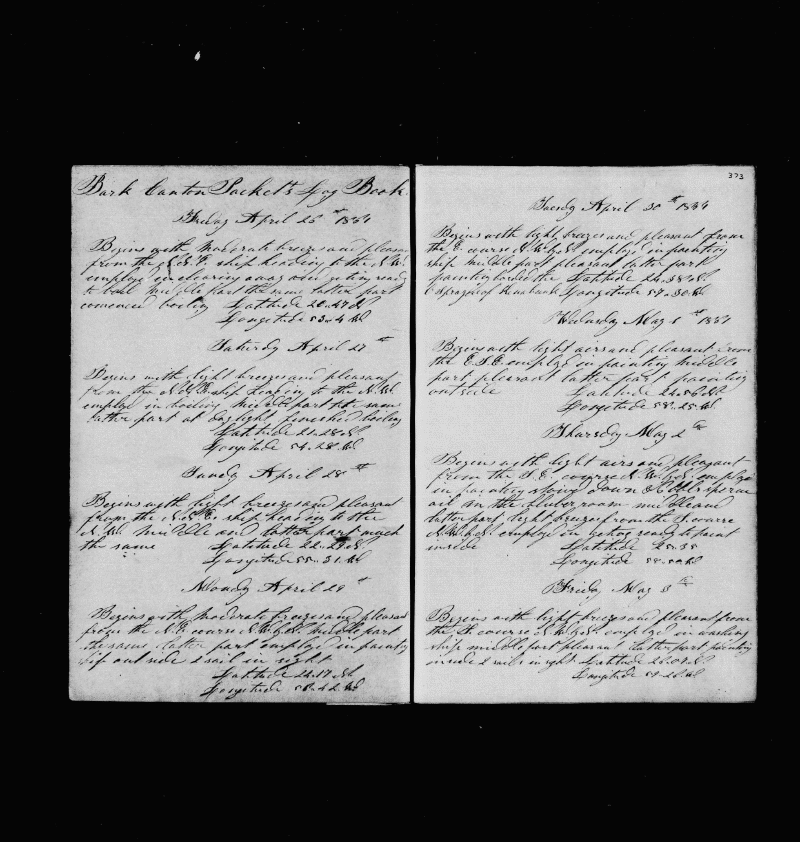 Bark Canton Packets Log Book
Friday April 26th 1839
Begins with moderate breeze and pleasant
from the ship heading to the N.W.
employe in clearing away and geting ready
to boil middle part the same latter part
comenced boiling Latitude 20..47 S
Longitude 53..4 W
Saturdy April 27th
Begins with light breezes and pleasant
from the N.N.E. ship heading to the N.W.
employe in boiling Middle part the same
latter part at daylight finished boiling
Latitude 21..28 S
Longitude 54..28 W
Sundy April 28th
Begins with light breezes and pleasant
from the N.N.E. ship heading to the
N.W. Middle and latter part much
the same Latitude 22..29 S
Longitude 55..31 W
Mondy April 29th
Begins with moderate breezes and pleasant
from the N.E. course N.W.b.N. Middle part
the same latter part employed in painting
ship outside 1 sail in sight
Latitude 24..17 S
Longitude 56..42 W
373
Tuesdy April 30th 1839
Begins with light breezes and pleasant from
the E. course N.W.b.N. employed in painting
ship middle part pleasant latter part
painting Latitude 24..38 S
Longitude 57..30 W
Wednesday May 1st 1839
Begins with light airs and pleasant from
the E.S.E. employd in painting middle
part pleasant latter part painting
outside Latitude 24..56
Longitude 58..25 W
Thursday May 2th
Begins with light airs and pleasant
from the S.E. course N.W.b.N. employd
in painting stowing down sperm
oil in the middle and
latter part light breezes from the E. course
N.W.b.N. employe in geting ready to paint
inside Latitude 25..35
Longitude 58..50 W
Friday May 3th
Begins with light breezes and pleasant from
the E. course N.W.b.N. employe in washing
ship middle part pleasant latter part painting
inside 2 sails in sight Latitude 26..02
Longitude 59..26 W